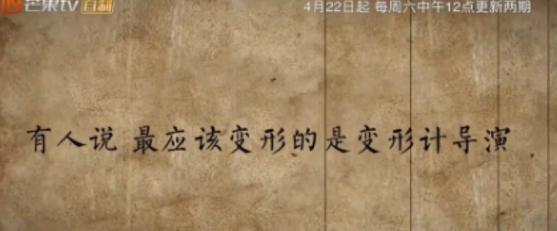 芒果tv 自制
4月22日起 每周六中午12点更新两期
有人说 最应该变形的是变形计导演